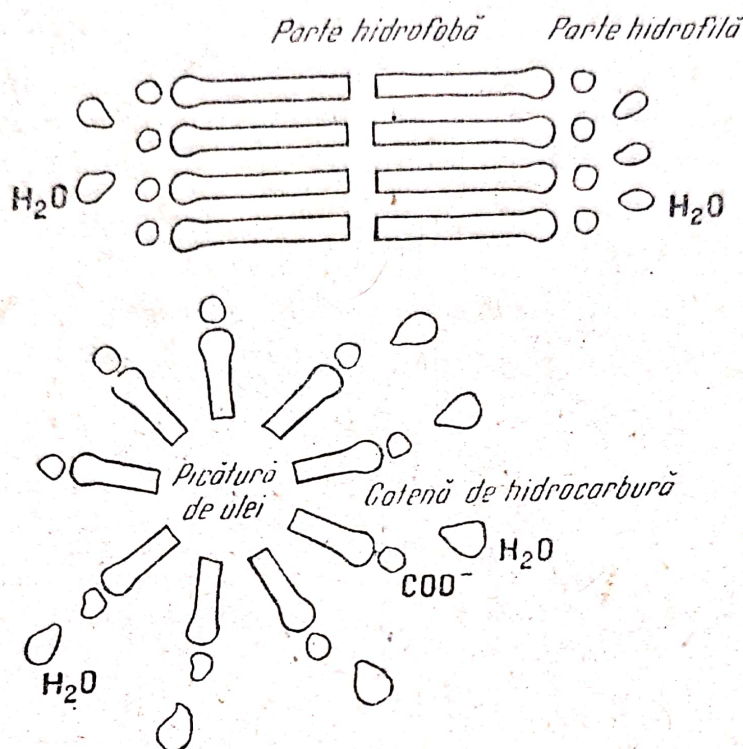 Parte hidrofobă
Parte hidrofilă
H₂O
H₂O
Picătură
de ulei
Catenă de hidrocarbură
H₂O
COO⁻
H₂O